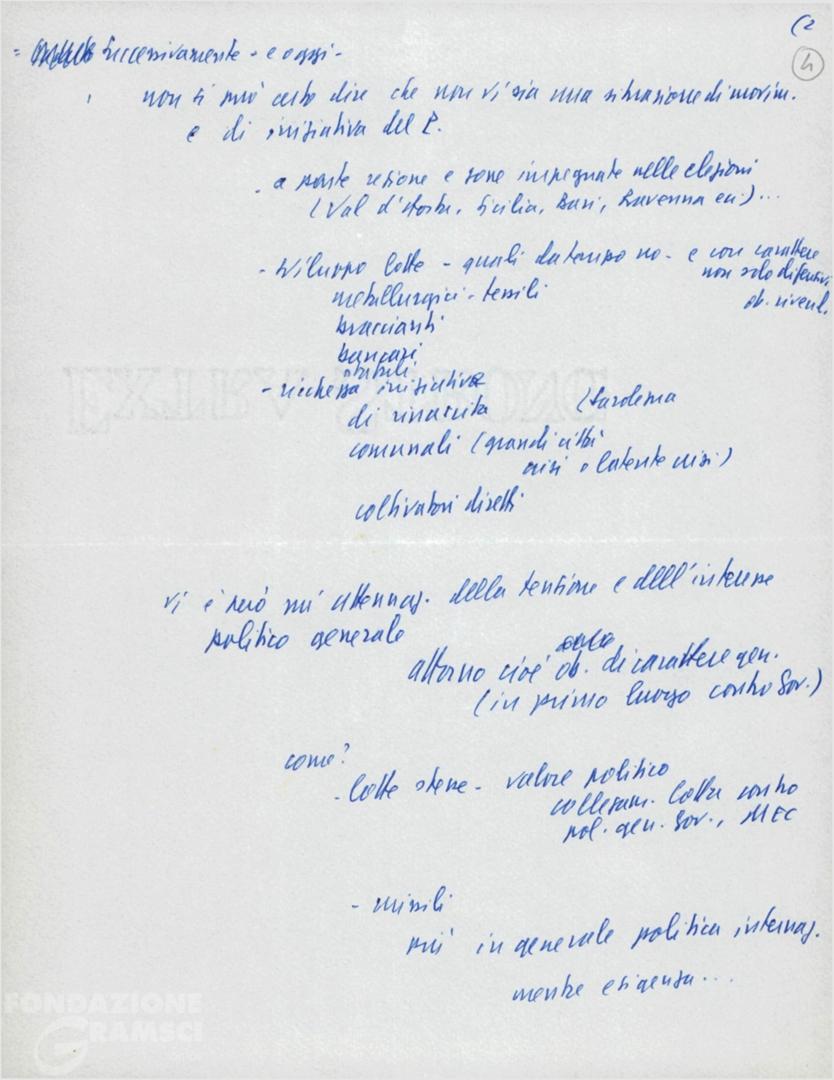 (2
4
= Successivamente - e oggi -
non si può certo dire che non vi sia una situazione di movim.
e di iniziativa del P.
- a parte regione e zone impegnate nelle elezioni
(Val d'Aosta, Sicilia, Bari, Ravenna ecc)...
- sviluppo lotte - quali da tempo no - e con carattere
non solo difensivi
ob. rivend.
metallurgici - tessili
braccianti
bancari
statali
- ricchezza iniziative
di rinascita (Sardegna
comunali (grandi città
crisi o latente crisi)
coltivatori diretti
vi è però un' attenuaz. della tensione e dell'interesse
politico generale
attorno cioè ob. di carattere gen.
(in primo luogo contro Gov.)
come?
- lotte stesse - valore politico
collegam. lotta contro
pol. gen. Gov., MEC
- missili
più in generale politica internaz.
mentre esigenza...
FONDAZIONE
GRAMSCI